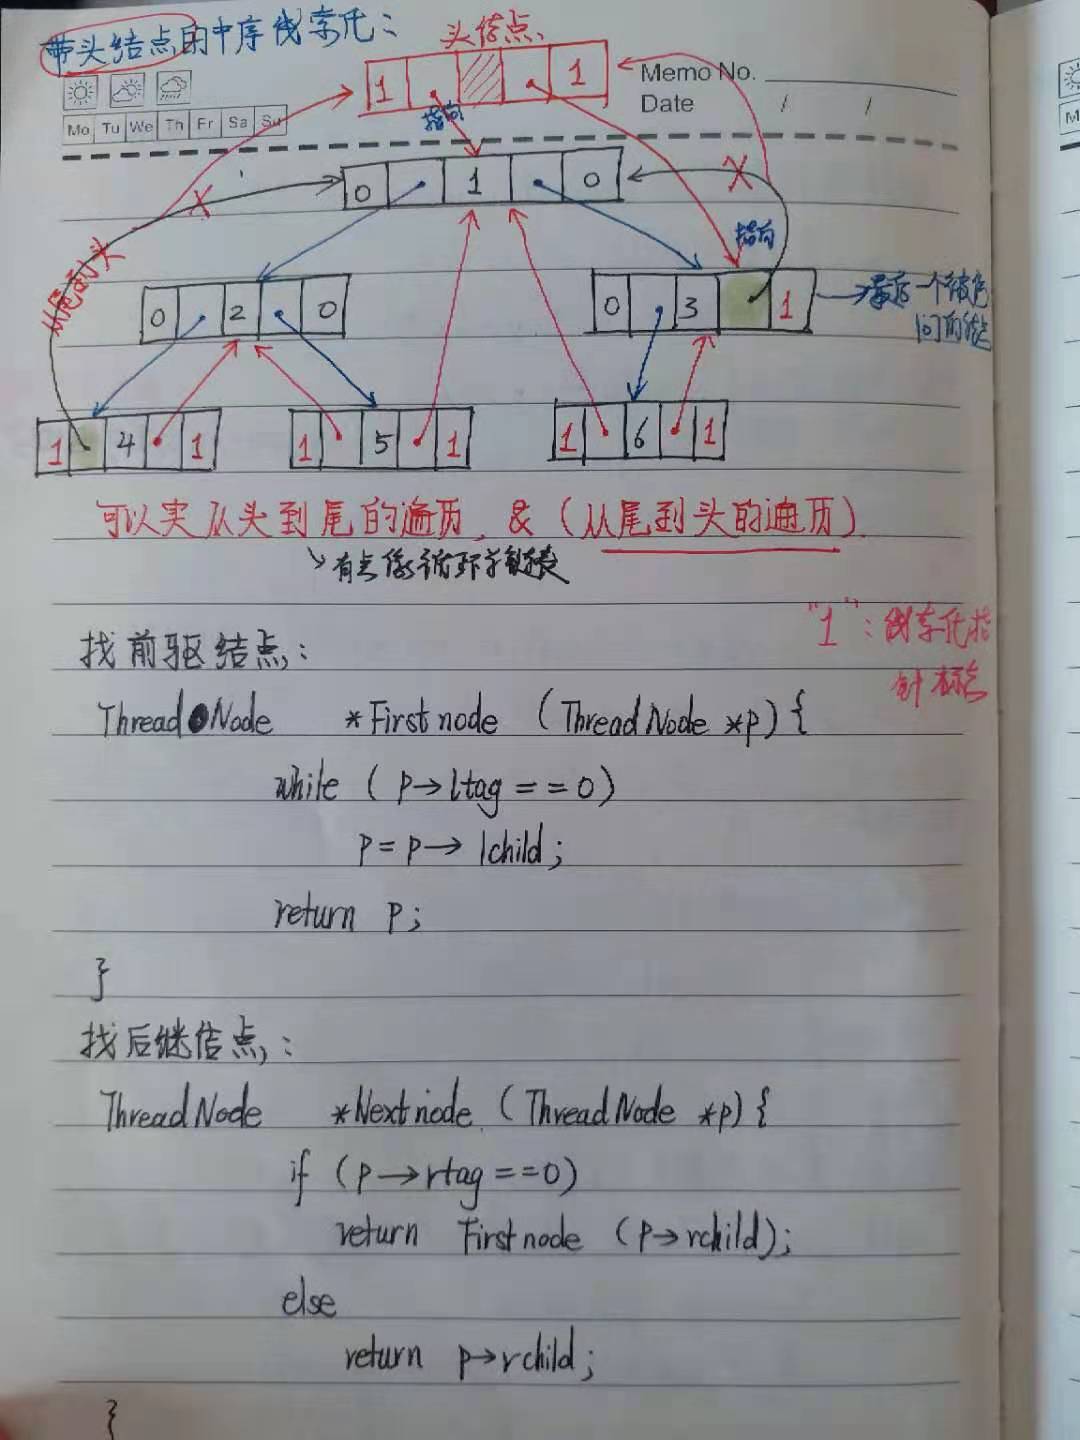 带头结点的中序线索化:
头结点
1 1
Memo No.
Date / /
Mo Tu We Th Fr Sa Su
指向
0 1 0
X X
从尾到头
指向
0 2 0
0 3 1
最后一个被访问的结点
1 4 1
1 5 1
1 6 1
可以实从头到尾的遍历, & (从尾到头的遍历).
有点像循环链表
"1":线索化指
针标志
找前驱结点:
ThreadNode *Firstnode (ThreadNode *p){
while (p→ltag==0)
p=p→lchild;
return p;
}
找后继结点:
ThreadNode *Nextnode (ThreadNode *p){
if (p→rtag==0)
return Firstnode (p→rchild);
else
return p→rchild;
}